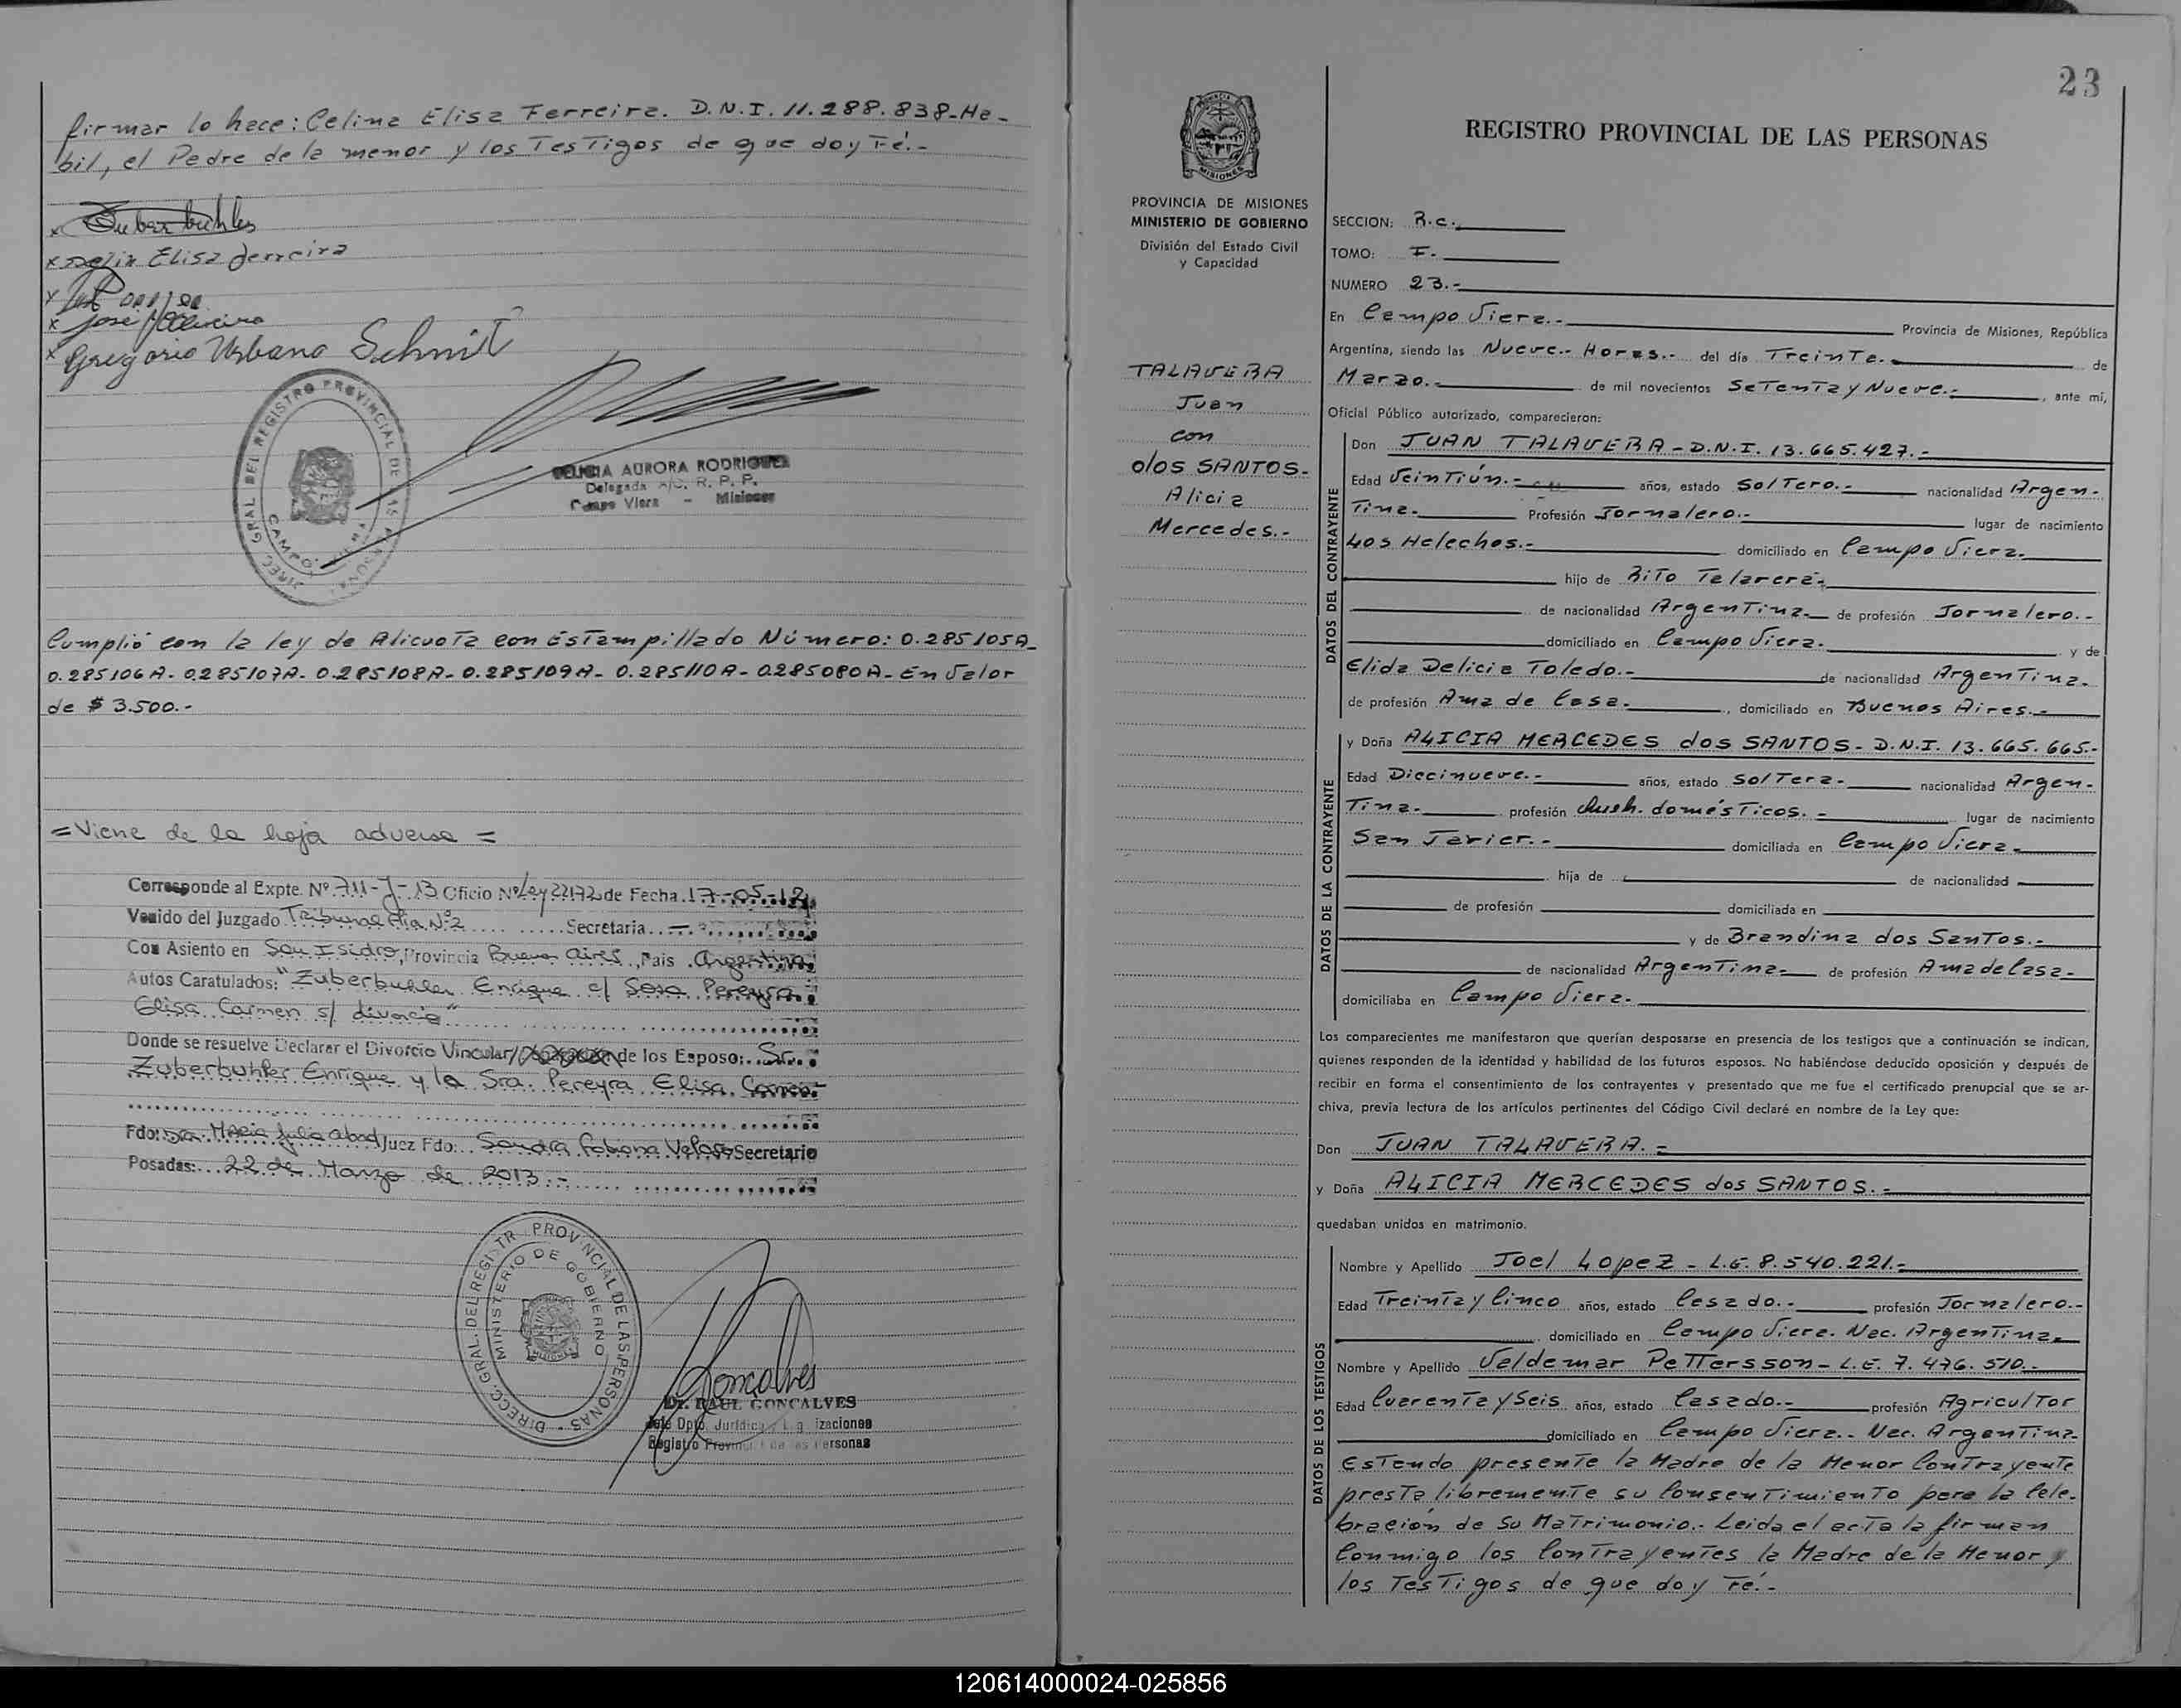 firmar lo hace: Celina Elisa Ferreira. D.N.I. 11.288.838-Há-
bil, el Padre de la menor y los Testigos de que doy Fé.-
x Zuberbuhler
x Elisa Ferreira
x José Oliveira
x Gregorio Urbano Schmit
DIREC. GRAL DEL REGISTRO PROVINCIAL DE LAS PERSONAS
CAMPO
DELICIA AURORA RODRIGUEZ
Delegada A/C. R. P. P.
Campo Viera - Misiones
Cumplió con la ley de Alicuota con Estampillado Número: 0.285105A-
0.285106A-0.285107A-0.285108A-0.285109A-0.285110A-0.285080A-En Valor
de $ 3.500.-
= Viene de la hoja adversa =
Corresponde al Expte. Nº 711-J-13 Oficio Nº Ley 22172 de Fecha 17-05-12
Venido del Juzgado Tribunal Flia Nº2 Secretaria -
Con Asiento en San Isidro, Provincia Buenos Aires, Pais Argentina
Autos Caratulados: "Zuberbuhler Enrique c/ Sosa Pereyra
Elisa Carmen s/ divorcio"
Donde se resuelve Declarar el Divorcio Vincular/ de los Esposo: Sr.
Zuberbuhler Enrique y la Sra. Pereyra Elisa Carmen
Fdo: Dra María Julia Abad Juez Fdo: Sandra Fabiana Veloso Secretario
Posadas: 22 de Marzo de 2013.-
DIRECC. GRAL. DEL REGISTR. PROVINCIAL DE LAS PERSONAS
MINISTERIO DE GOBIERNO
Goncalves
Dr. RAUL GONCALVES
Jefe Dpto. Jurídico
Registro Provincial de las Personas
23
REGISTRO PROVINCIAL DE LAS PERSONAS
PROVINCIA DE MISIONES
MINISTERIO DE GOBIERNO
División del Estado Civil
y Capacidad
TALAVERA
Juan
con
dos SANTOS-
Alicia
Mercedes.-
SECCION: R.c.
TOMO: I.
NUMERO 23.-
En Campo Viera.- Provincia de Misiones, República
Argentina, siendo las Nueve.- Horas.- del día Treinta.- de
Marzo.- de mil novecientos Setenta y Nueve.- , ante mí,
Oficial Público autorizado, comparecieron:
DATOS DEL CONTRAYENTE
Don JUAN TALAVERA-D.N.I. 13.665.427.-
Edad Veintiún.- años, estado Soltero.- nacionalidad Argen-
tina.- Profesión Jornalero.- lugar de nacimiento
Los Helechos.- domiciliado en Campo Viera.
hijo de Rito Talavera.
de nacionalidad Argentina- de profesión Jornalero.-
domiciliado en Campo Viera. y de
Elida Delicia Toledo.- de nacionalidad Argentina.
de profesión Ama de Casa. , domiciliado en Buenos Aires.-
DATOS DE LA CONTRAYENTE
y Doña ALICIA MERCEDES dos SANTOS-D.N.I. 13.665.665.-
Edad Diecinueve.- años, estado Soltera- nacionalidad Argen-
tina- profesión Queh. domésticos.- lugar de nacimiento
San Javier.- domiciliada en Campo Viera-
hija de de nacionalidad
de profesión domiciliada en
y de Brandina dos Santos.-
de nacionalidad Argentina- de profesión Ama de Casa-
domiciliaba en Campo Viera-
Los comparecientes me manifestaron que querían desposarse en presencia de los testigos que a continuación se indican,
quienes responden de la identidad y habilidad de los futuros esposos. No habiéndose deducido oposición y después de
recibir en forma el consentimiento de los contrayentes y presentado que me fue el certificado prenupcial que se ar-
chiva, previa lectura de los artículos pertinentes del Código Civil declaré en nombre de la Ley que:
Don JUAN TALAVERA.-
y Doña ALICIA MERCEDES dos SANTOS.-
quedaban unidos en matrimonio.
DATOS DE LOS TESTIGOS
Nombre y Apellido Joel Lopez - L.E. 8.540.221.-
Edad Treinta y Cinco años, estado Casado.- profesión Jornalero.-
domiciliado en Campo Viera. Nac. Argentina-
Nombre y Apellido Valdemar Pettersson-L.E. 7.476.510.-
Edad Cuarenta y Seis años, estado Casado.- profesión Agricultor
domiciliado en Campo Viera.- Nac. Argentina-
Estando presente la Madre de la Menor Contrayente
presta libremente su Consentimiento para la Cele-
bración de su Matrimonio.- Leida el acta la firman
Conmigo los Contrayentes la Madre de la Menor y
los Testigos de que doy Fé.-
120614000024-025856